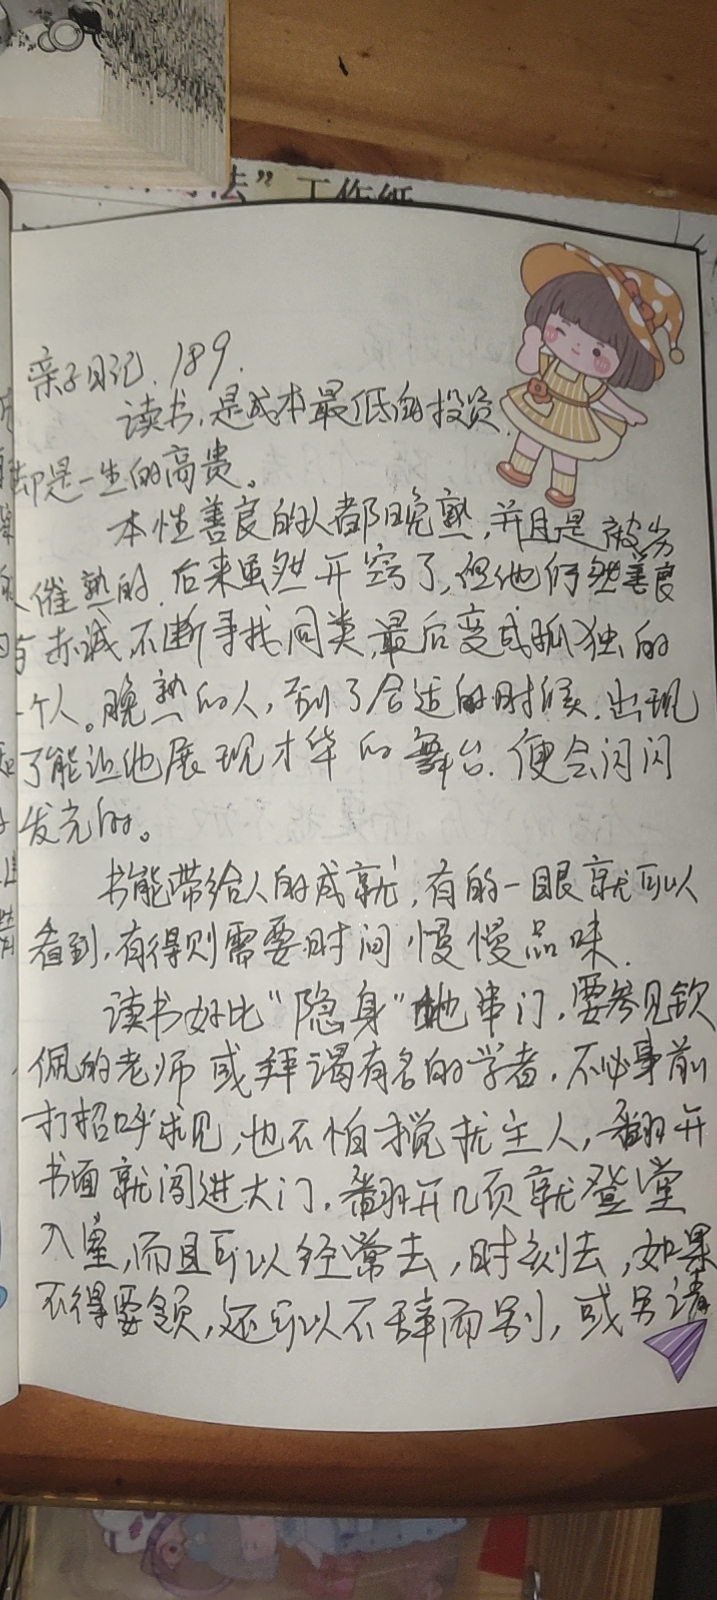 法”工作纸
亲子日记.189.
读书,是成本最低的投资
却是一生的高贵。
本性善良的人都晚熟,并且是被劣
人催熟的.后来虽然开窍了,但他们仍然善良
与赤诚,不断寻找同类,最后变成孤独的
一个人。晚熟的人,到了合适的时候.出现
了能让他展现才华的舞台.便会闪闪
发光的。
书能带给人的成就,有的一眼就可以
看到,有得则需要时间慢慢品味.
读书好比“隐身”地串门,要参见钦
佩的老师或拜谒有名的学者,不必事前
打招呼求见,也不怕搅扰主人,翻开
书面就闯进大门,翻开几页就登堂
入室,而且可以经常去,时刻去,如果
不得要领,还可以不辞而别,或另请